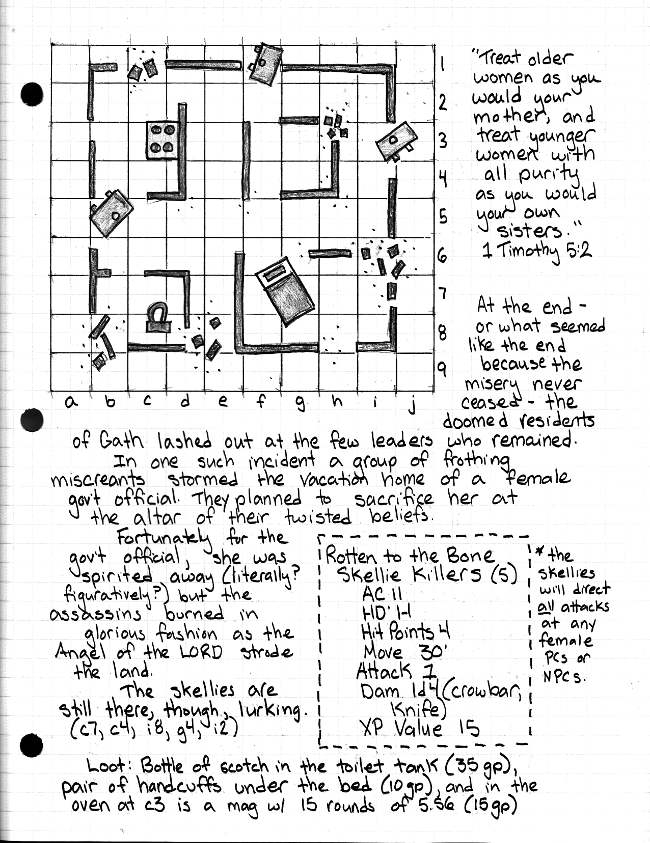 "Treat older
women as you
would your
mother, and
treat younger
women with
all purity
as you would
your own
sisters."
1 Timothy 5:2
1
2
3
4
5
6
7
8
9
a b c d e f g h i j
At the end -
or what seemed
like the end
because the
misery never
ceased - the
doomed residents
of Gath lashed out at the few leaders who remained.
In one such incident a group of frothing
miscreants stormed the vacation home of a female
gov't official. They planned to sacrifice her at
the altar of their twisted beliefs.
Fortunately for the
gov't official, she was
spirited away (literally?
figuratively?) but the
assassins burned in
glorious fashion as the
Angel of the LORD strode
the land.
The skellies are
still there, though, lurking.
(c7, c4, i8, g4, i2)
Rotten to the Bone
Skellie Killers (5)
AC 11
HD 1-1
Hit Points 4
Move 30'
Attack 1
Dam. 1d4 (crowbar,
Knife)
XP Value 15
* the
skellies
will direct
all attacks
at any
female
PCs or
NPCs.
Loot: Bottle of scotch in the toilet tank (35 gp),
pair of handcuffs under the bed (10 gp), and in the
oven at c3 is a mag w/ 15 rounds of 5.56 (15 gp)